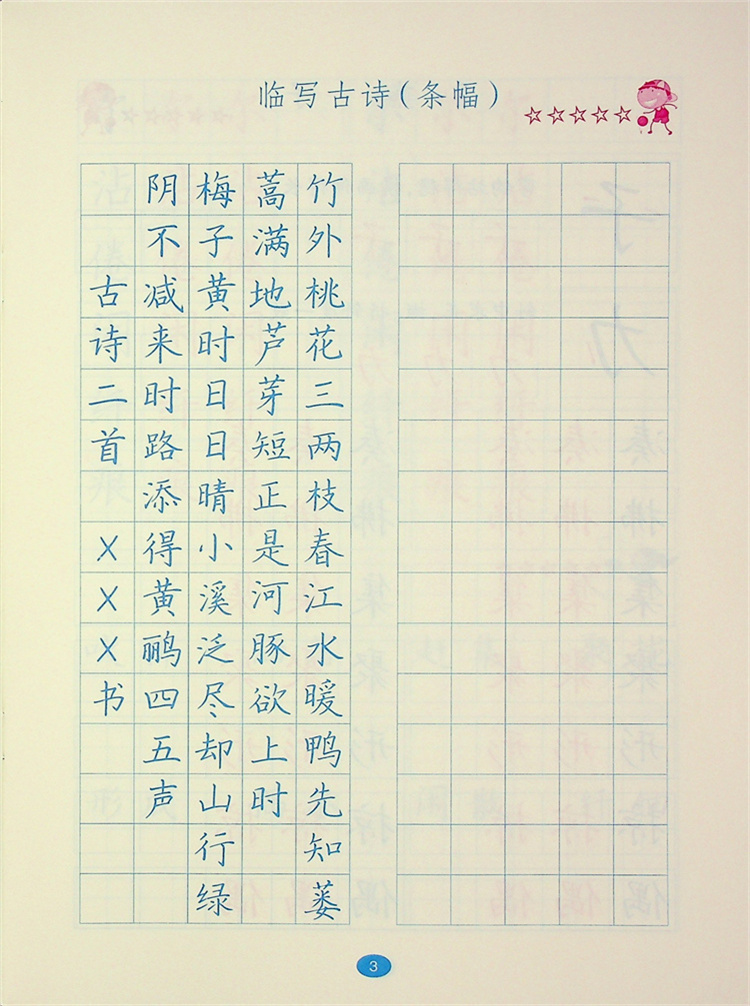 临写古诗(条幅)
竹外桃花三两枝春江水暖鸭先知蒌
蒿满地芦芽短正是河豚欲上时
梅子黄时日日晴小溪泛尽却山行绿
阴不减来时路添得黄鹂四五声
古诗二首 XXX书
3